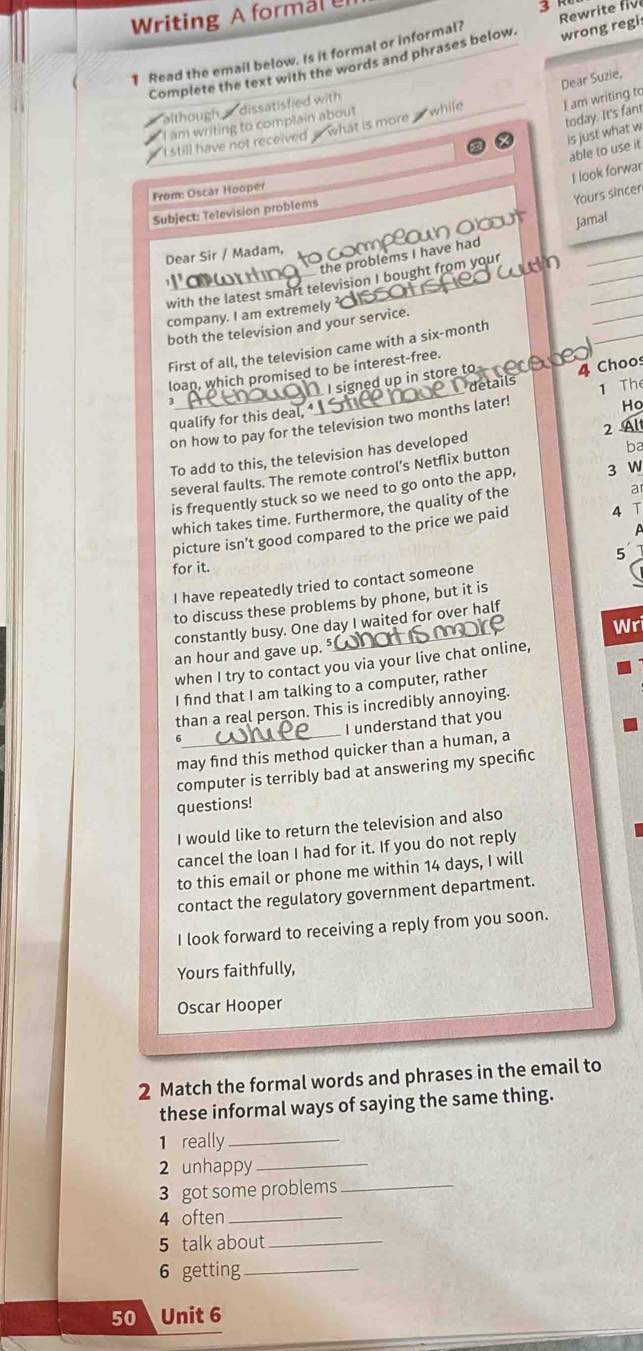 Writing A formal
1 Read the email below. Is it formal or informal?
Complete the text with the words and phrases below.
although dissatisfied with
I am writing to complain about
I still have not received what is more while
From: Oscar Hooper
Subject: Television problems
Dear Sir / Madam,
1 I'am writing to compeain about the problems I have had
with the latest smart television I bought from your
company. I am extremely 2 dissatisfied with
both the television and your service.
First of all, the television came with a six-month
loan, which promised to be interest-free.
3 Aethough I signed up in store to
qualify for this deal, 4 I stiee have not received details
on how to pay for the television two months later!
To add to this, the television has developed
several faults. The remote control's Netflix button
is frequently stuck so we need to go onto the app,
which takes time. Furthermore, the quality of the
picture isn't good compared to the price we paid
for it.
I have repeatedly tried to contact someone
to discuss these problems by phone, but it is
constantly busy. One day I waited for over half
an hour and gave up. 5 what is more
when I try to contact you via your live chat online,
I find that I am talking to a computer, rather
than a real person. This is incredibly annoying.
6 whiee I understand that you
may find this method quicker than a human, a
computer is terribly bad at answering my specific
questions!
I would like to return the television and also
cancel the loan I had for it. If you do not reply
to this email or phone me within 14 days, I will
contact the regulatory government department.
I look forward to receiving a reply from you soon.
Yours faithfully,
Oscar Hooper
2 Match the formal words and phrases in the email to
these informal ways of saying the same thing.
1 really
2 unhappy
3 got some problems
4 often
5 talk about
6 getting
50 Unit 6
3
Rewrite fiv
wrong regi
Dear Suzie,
I am writing to
today. It's fant
is just what w
able to use it
I look forwar
Yours sincer
Jamal
4 Choos
1 The
Ho
2 Alt
ba
3 W
ar
4 T
A
5
Wri